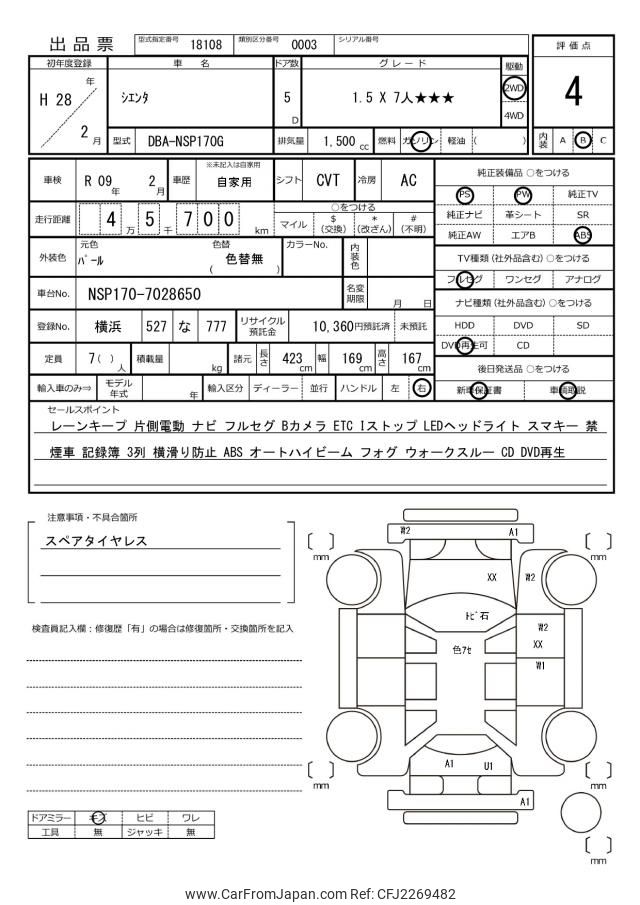 出品票
型式指定番号 18108 類別区分番号 0003 シリアル番号
評価点
4
内装 A B C
初年度登録 車名 ドア数 グレード 駆動
H 28 年 2 月
シエンタ 5 D 1.5 X 7人★★★ 2WD 4WD
型式 DBA-NSP170G 排気量 1,500 cc 燃料 ガソリン 軽油 ( )
車検 R 09 年 2 月 車歴 ※未記入は自家用 自家用 シフト CVT 冷房 AC
走行距離 4 万 5 千 7 0 0 km
○をつける
マイル $ (交換) * (改ざん) # (不明)
外装色 元色 パール 色替 ( 色替無 ) カラーNo. 内装色
車台No. NSP170-7028650 名変期限 月 日
登録No. 横浜 527 な 777 リサイクル預託金 10,360円預託済 未預託
定員 7( ) 人 積載量 kg 諸元 長さ 423 cm 幅 169 cm 高さ 167 cm
輸入車のみ⇒ モデル年式 年 輸入区分 ディーラー 並行 ハンドル 左 右
純正装備品 ○をつける
PS PW 純正TV
純正ナビ 革シート SR
純正AW エアB ABS
TV種類(社外品含む) ○をつける
フルセグ ワンセグ アナログ
ナビ種類(社外品含む) ○をつける
HDD DVD SD
DVD再生可 CD
後日発送品 ○をつける
新車保証書 車輌取説
セールスポイント
レーンキープ 片側電動 ナビ フルセグ Bカメラ ETC Iストップ LEDヘッドライト スマキー 禁
煙車 記録簿 3列 横滑り防止 ABS オートハイビーム フォグ ウォークスルー CD DVD再生
注意事項・不具合箇所
スペアタイヤレス
検査員記入欄：修復歴「有」の場合は修復箇所・交換箇所を記入
ドアミラー キズ ヒビ ワレ
工具 無 ジャッキ 無
W2 A1
[ ] mm [ ] mm
XX W2
トビ石
W2
XX
色アセ
W1
A1 U1
[ ] mm [ ] mm
A1
[ ] mm
www.CarFromJapan.com Ref: CFJ2269482